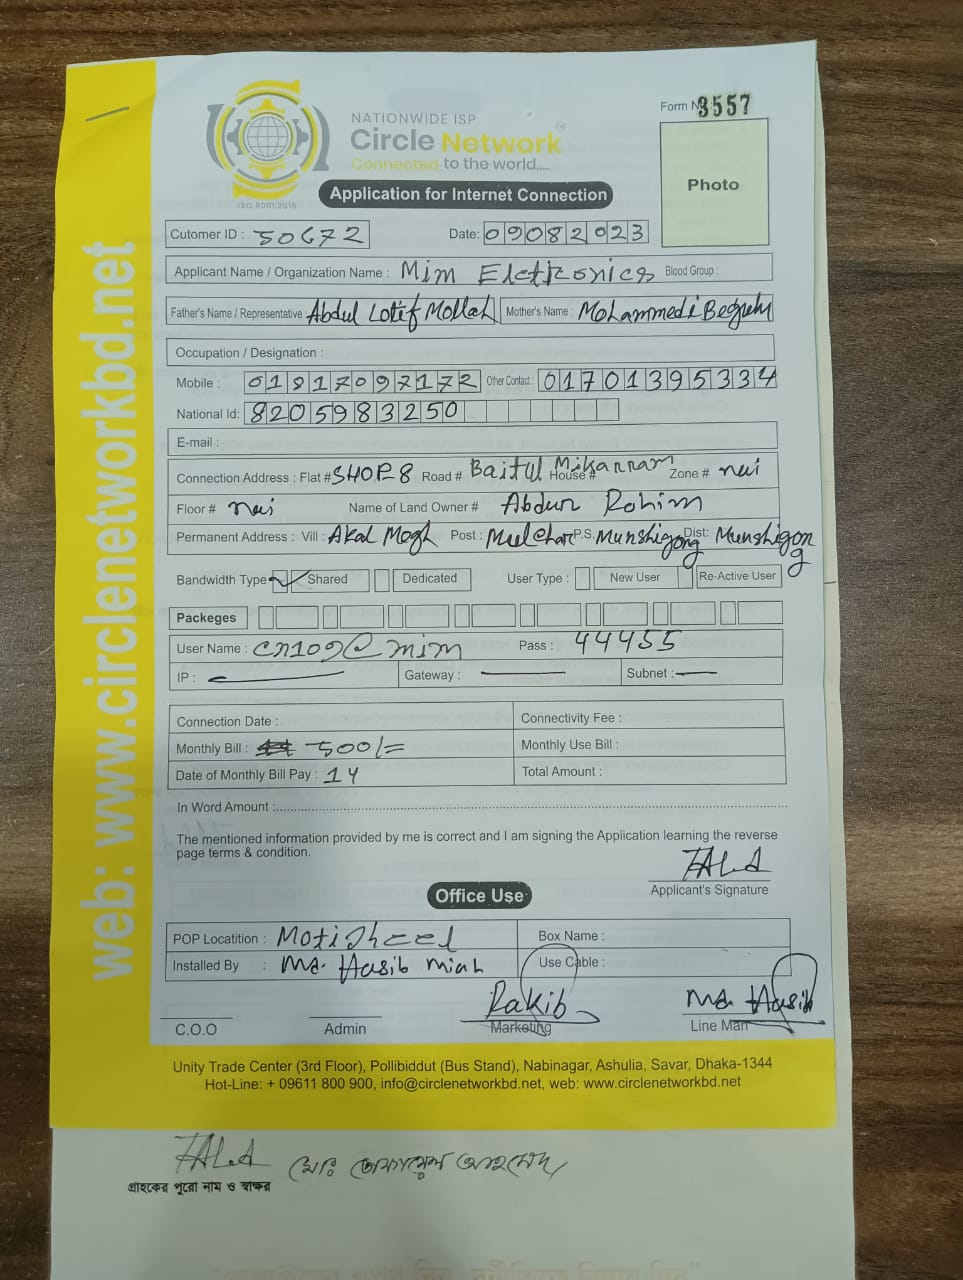 NATIONWIDE ISP
Circle Network
Connected to the world.....
ISO 9001:2015
Form No 3557
Photo
Application for Internet Connection
Cutomer ID : 50672 Date: 09082023
Applicant Name / Organization Name : Mim Elctronics Blood Group :
Father's Name / Representative : Abdul Lotif Mollah Mother's Name : Mohammedi Begum
Occupation / Designation :
Mobile : 01817097172 Other Contact : 01701395334
National Id: 8205983250
E-mail :
Connection Address : Flat # SHOP-8 Road # Baitul Mikarram House # Zone # nai
Floor # nai Name of Land Owner # Abdur Rohim
Permanent Address : Vill : Akal Megh Post : P.S. Munshigong Dist: Munshigong
Bandwidth Type ✓ Shared Dedicated User Type : New User Re-Active User
Packeges
User Name : cn109@mim Pass : 44455
IP : — Gateway : — Subnet : —
Connection Date : Connectivity Fee :
Monthly Bill : 500/= Monthly Use Bill :
Date of Monthly Bill Pay : 14 Total Amount :
In Word Amount :
The mentioned information provided by me is correct and I am signing the Application learning the reverse
page terms & condition.
Applicant's Signature
Office Use
POP Locatition : Motijheel Box Name :
Installed By : Md. Hasib miah Use Cable :
Rakib Md. Hasib
C.O.O Admin Marketing Line Man
Unity Trade Center (3rd Floor), Pollibiddut (Bus Stand), Nabinagar, Ashulia, Savar, Dhaka-1344
Hot-Line: + 09611 800 900, info@circlenetworkbd.net, web: www.circlenetworkbd.net
web: www.circlenetworkbd.net
মোঃ তোফায়েল আহমেদ
গ্রাহকের পুরো নাম ও স্বাক্ষর